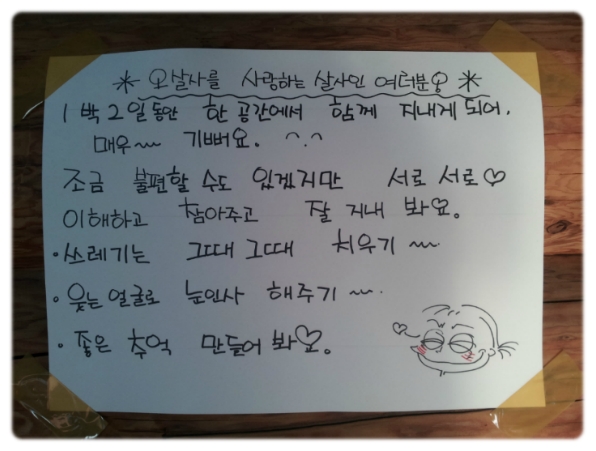 * 오살사를 사랑하는 살사인 여러분! *
1박2일동안 한 공간에서 함께 지내게 되어,
매우~~ 기뻐요. ^.^
조금 불편할 수도 있겠지만 서로 서로♡
이해하고 참아주고 잘 지내 봐요.
· 쓰레기는 그때 그때 치우기~~
· 웃는 얼굴로 눈인사 해주기~~.
· 좋은 추억 만들어 봐요.